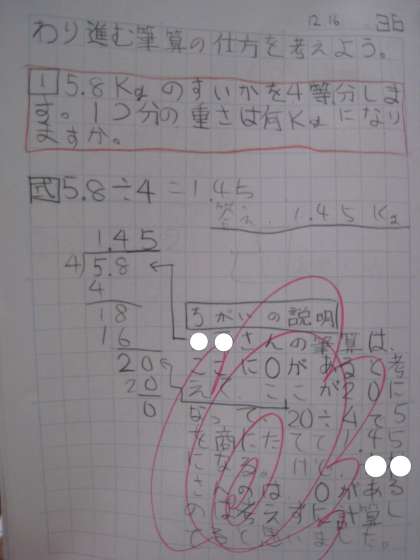 12.16
わり進む筆算の仕方を考えよう。
1 5.8Kgのすいかを4等分しま
す。1つ分の重さは何Kgになり
ますか。
式 5.8÷4=1.45
答え 1.45Kg
1.45
4)5.8
4
18
16
20
20
0
ちがいの説明
さんの筆算は、
ここに0があると考
えて、ここが20に
なって 20÷4で5
を商にたてて1.45
になる。
さんのは、0がある
のは考えずに計算し
てると思いました。